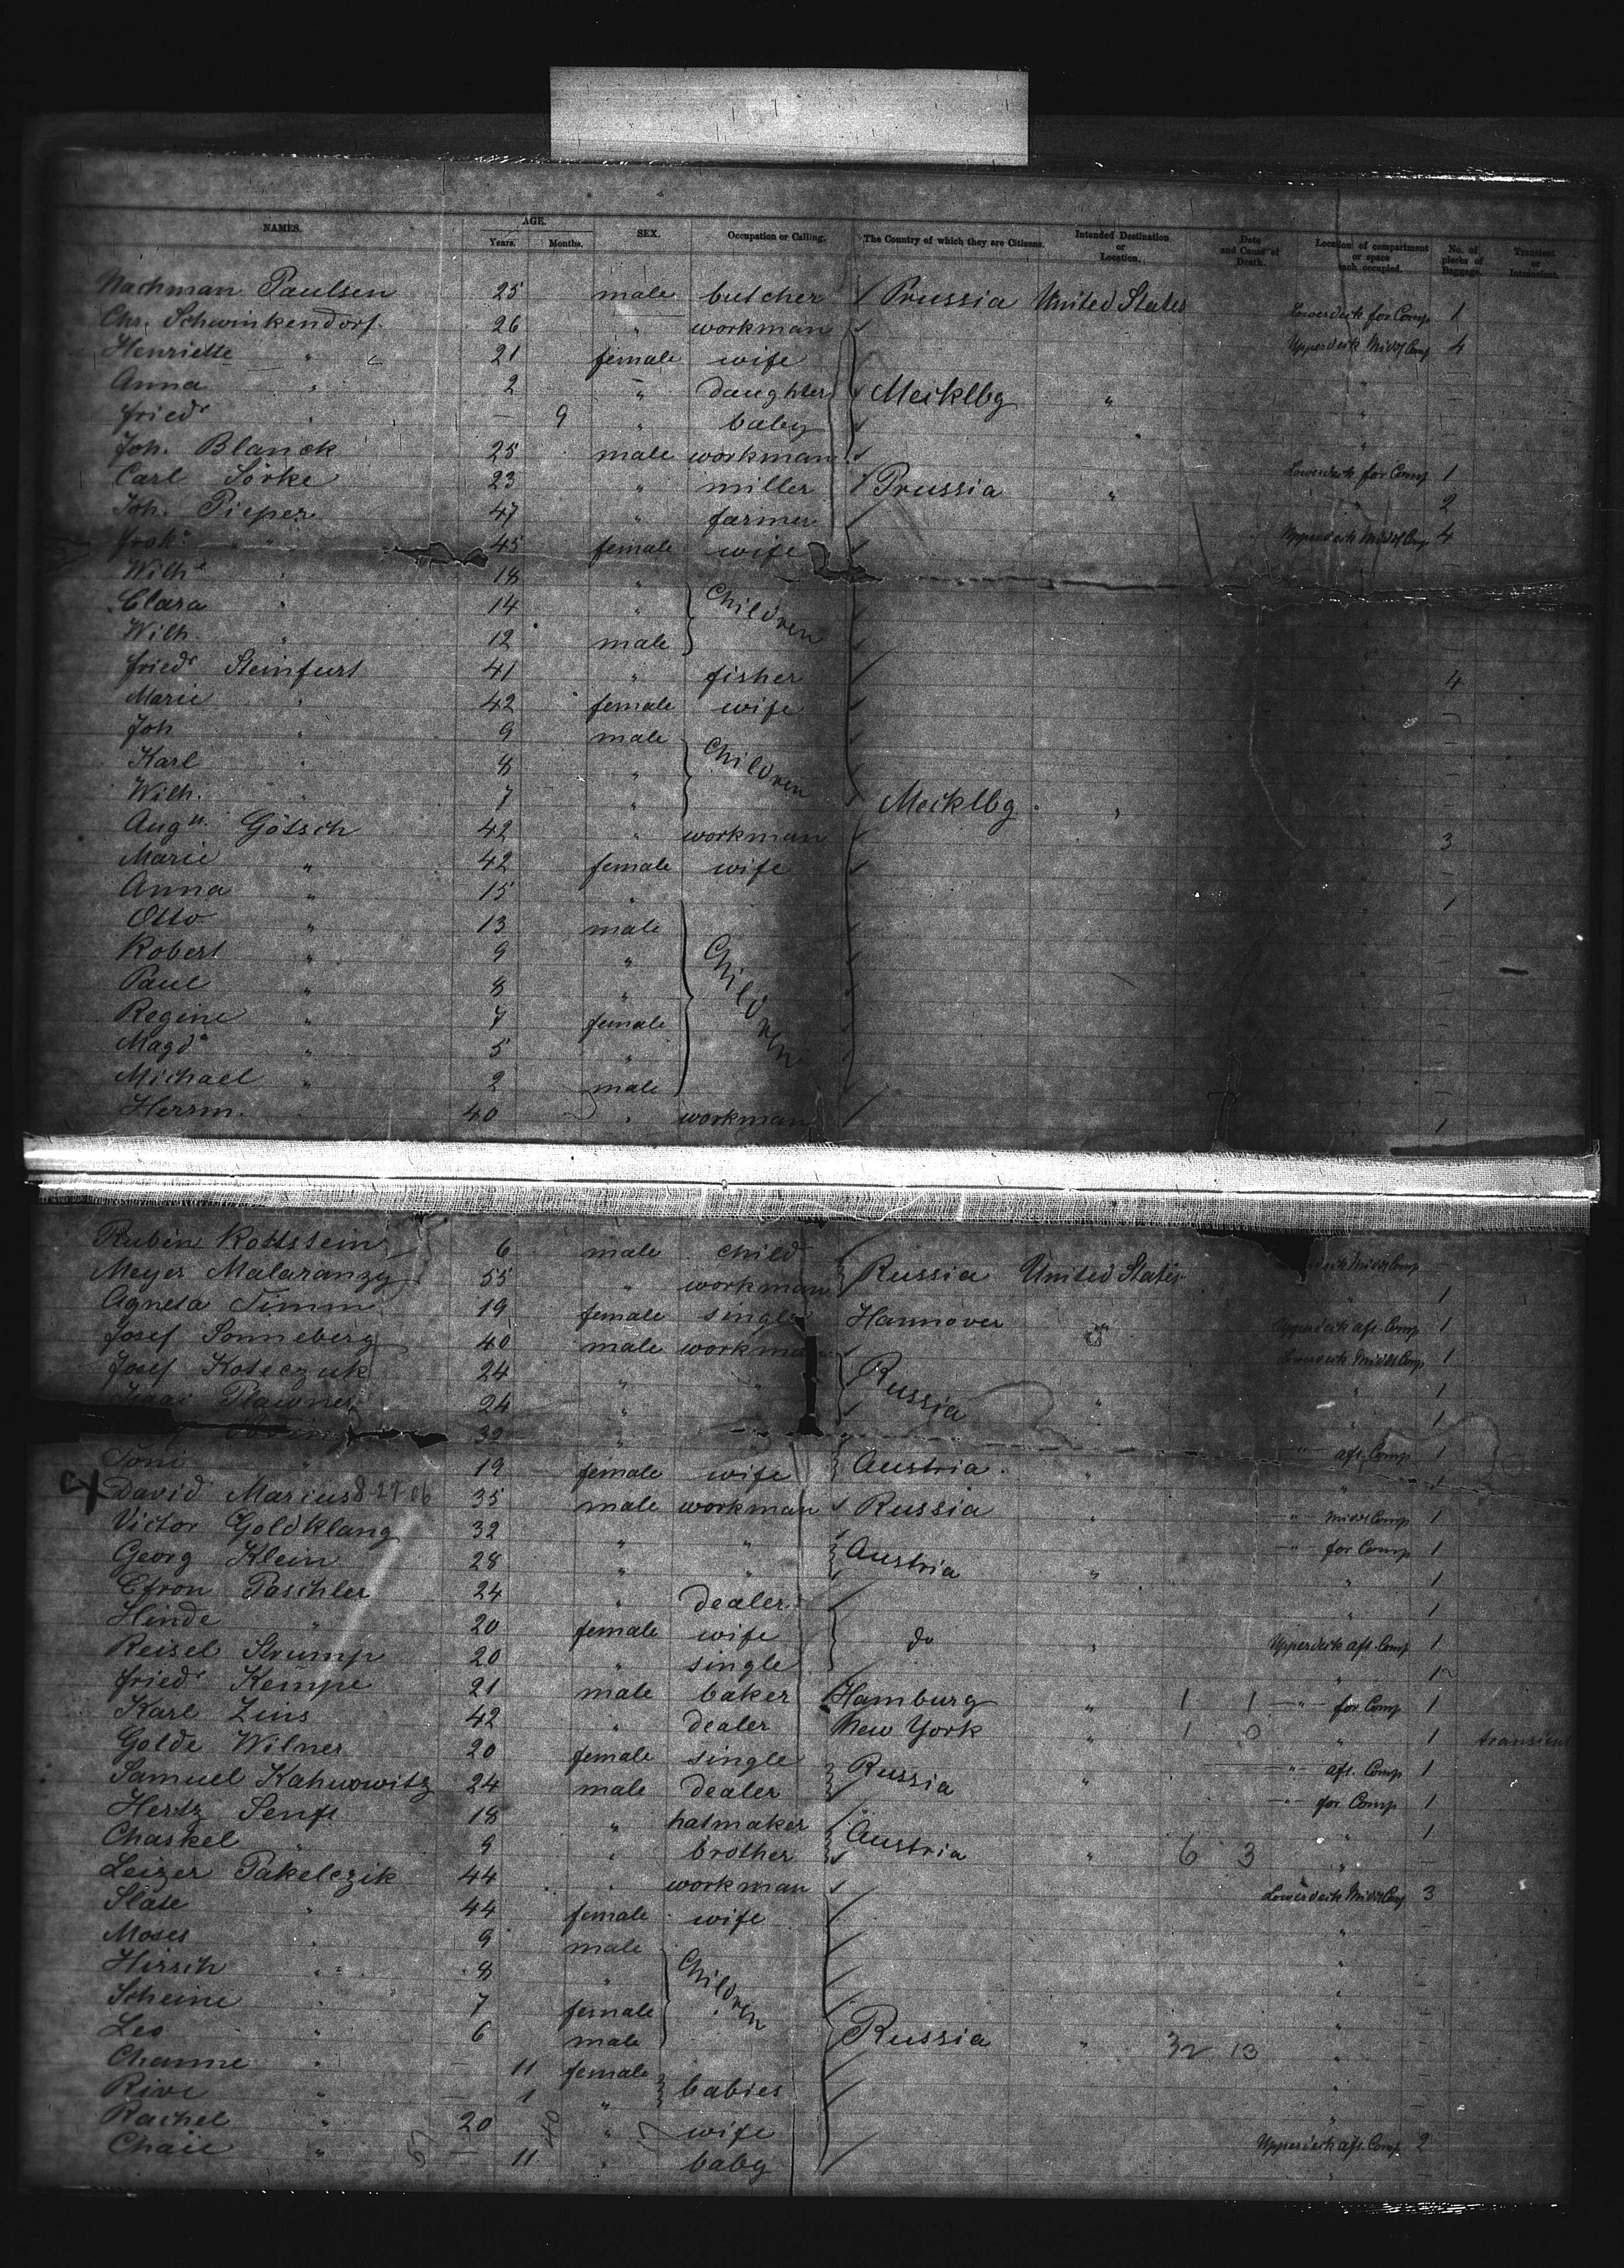 NAMES. AGE. Years. Months. SEX. Occupation or Calling. The Country of which they are Citizens. Intended Destination or Location. Date and Cause of Death. Location of compartment or space each occupied. No. of pieces of Baggage. Transient or
Nachman Paulsen 25 male butcher Prussia United States Lowerdeck for Comp 1
Chr. Schwinkendorf 26 " workman Upperdeck Midds Comp 4
Henriette " 21 female wife " –
Anna " 2 " daughter Mecklbg " " –
Friedr " – 9 " baby " –
Joh. Blanck 25 male workman Lowerdeck for Comp 1
Carl Sörke 23 " miller Prussia " " 2
Joh. Pieper 47 " farmer Upperdeck Midds Comp 4
45 female wife –
Wilh " 18 " Children –
Clara " 14 " –
Wilh. " 12 male –
Friedr Steinfurt 41 " fisher " 4
Marie " 42 female wife –
Joh " 9 male Children –
Karl " 8 " –
Wilh. " 7 " Mecklbg " –
Aug. Götsch 42 " workman 3
Marie " 42 female wife –
Anna " 15 " 1
Otto " 13 male Children –
Robert " 9 " –
Paul " 8 " –
Regine " 7 female –
Magda " 5 " –
Michael " 2 male –
Herrm. " 40 " workman 1
Rubin Rottstein 6 male child Midds Comp –
Meyer Malaranzy 55 " workman Russia United States " 1
Agnesa Timm 19 female single Hannover " Upperdeck aft. Comp 1
Josef Sonneberg 40 male workman Lowerdeck Midds Comp 1
Josef Koteczuk 24 " " Russia " 1
Plawner 24 " " " 1
32 " " " aft. Comp 1
Toni " 19 female wife Austria " " 1
David Marius 8-27-06 35 male workman Russia " " Midds Comp 1
Victor Goldklang 32 " " " for Comp 1
Georg Klein 28 " " Austria " " 1
Efron Paschler 24 " dealer " 1
Hinde " 20 female wife do " Upperdeck aft. Comp 1
Reisel Strump 20 " single " 1
Friedr Kempe 21 male baker Hamburg " 1 1 " for Comp 1
Karl Zins 42 " dealer New York " 1 0 " 1 transient
Golde Wilner 20 female single Russia " aft. Comp 1
Samuel Kahnowitz 24 male dealer " " for Comp 1
Hertz Senft 18 " hatmaker " 1
Chaskel " 9 " brother Austria " 6 3 " –
Leizer Pakelczik 44 " workman Lowerdeck Midds Comp 3
Slate " 44 female wife " –
Moses " 9 male Children " –
Hirsch " 8 " " –
Scheine " 7 female " –
Leo " 6 male Russia " 32 13 " –
Channe " – 11 female babies " –
Rive " – 1 " " –
Rachel " 20 " wife Upperdeck aft. Comp 2
Chaie " – 11 " baby " –